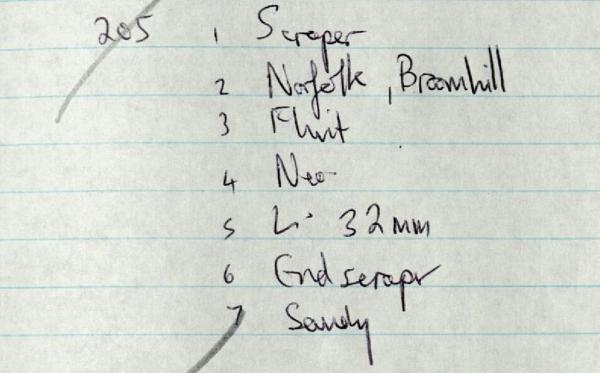 205 1 Scraper
2 Norfolk, Broomhill
3 Flint
4 Neo
5 L: 32mm
6 End scrapr
7 Sandy